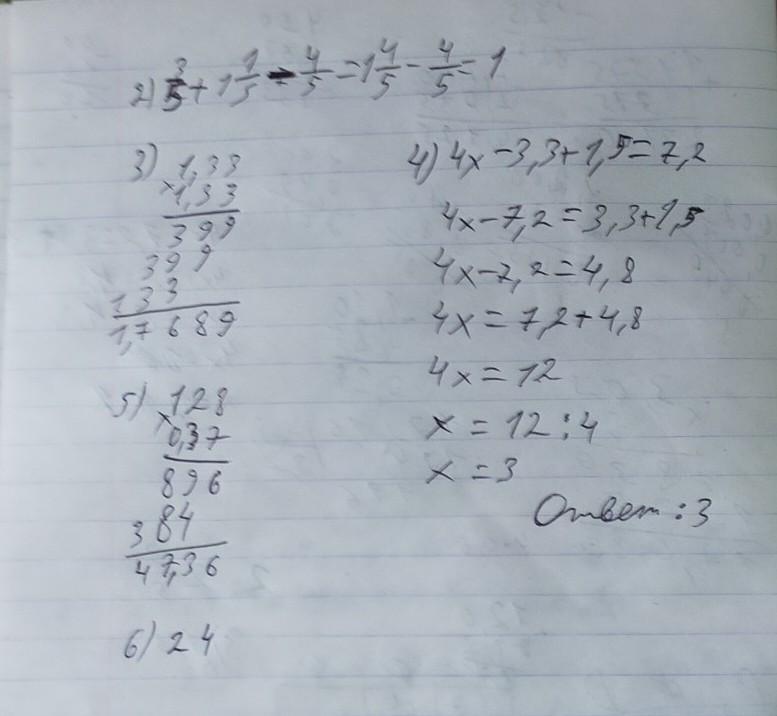 2) 3/5 + 1 1/5 - 4/5 = 1 4/5 - 4/5 = 1
3) 1,33
× 1,33
399
399
133
1,7689
4) 4x - 3,3 + 1,5 = 7,2
4x - 7,2 = 3,3 + 1,5
4x - 7,2 = 4,8
4x = 7,2 + 4,8
4x = 12
x = 12 : 4
x = 3
Ответ : 3
5) 128
× 0,37
896
384
47,36
6) 24